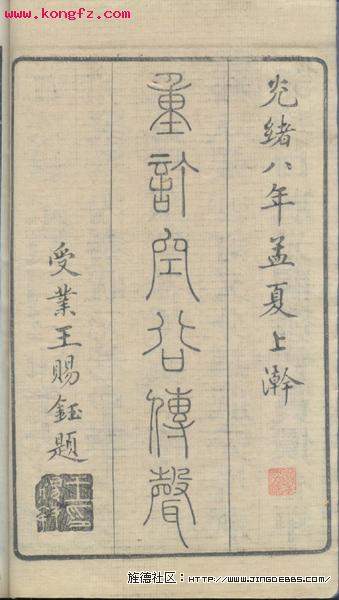 www.kongfz.com
光緒八年孟夏上澣
重訂空谷傳聲
受業王賜鈺題
旌德社区：HTTP://WWW.JINGDEBBS.COM/